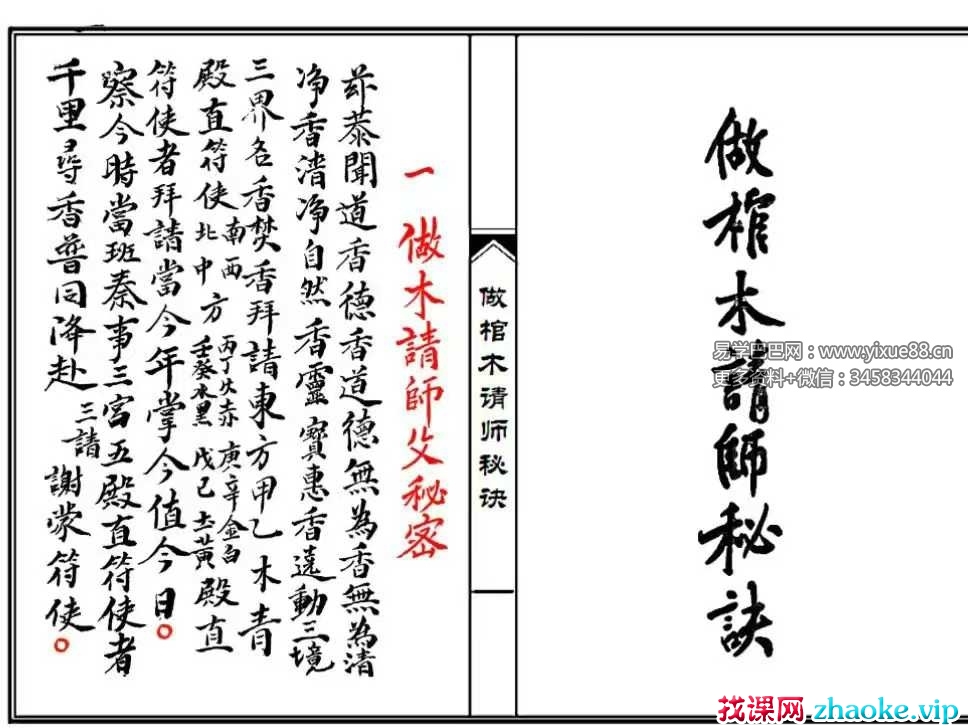 做棺木請師秘訣
易学巴巴网：www.yixue88.cn
更多资料+微信：3458344044
做棺木请师秘诀
一 做木請師父秘密
恭聞道香德香道德無為香無為清
净香清净自然香靈寶惠香遶動三境
三界名香焚香拜請東方甲乙木青
殿直符使南西北中方丙丁火赤庚辛金白壬癸水黑戊己土黄殿直
符使者拜請當今年掌今值今日
察今時當班奏事三宫五殿直符使者
千里尋香普同降赴三請謝蒙符使
找课网 zhaoke.vip